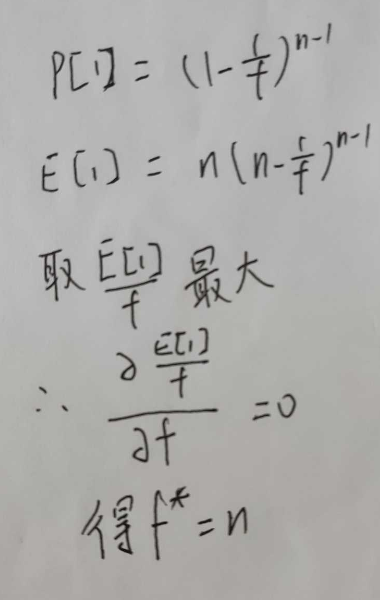 P[1] = (1-1/f)^{n-1}
E[1] = n(n-1/f)^{n-1}
取 E[1]/f 最大
∴ ∂(E[1]/f)/∂f =0
得 f*=n